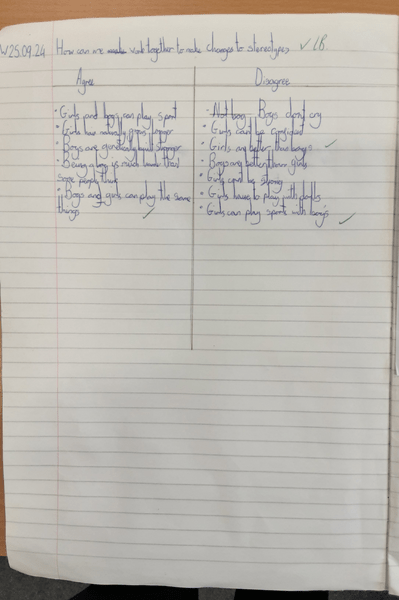 W25.09.24 How can we work together to make changes to stereotypes ✓ LB
Agree
• Girls and boys can play sport
• Girls hair naturally grows longer
• Boys are genetically built stronger
• Being a boy is much harder than
some people think
• Boys and girls can play the same
things
Disagree
• Not boy Boys don't cry
• Girls can't be confident
• Girls are better than boys
• Boys are better than girls
• Girls can't be strong
• Girls have to play with dolls
• Girls can play sport with boys